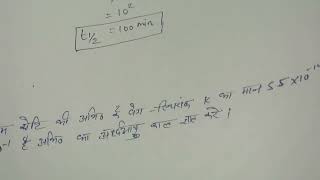 = 10²
t1/2 = 100 min
म कोटि की अभि० के वेग स्थिरांक K का मान 5.5 × 10⁻¹⁴
⁻¹ है अभि० का अर्धआयु काल ज्ञात करें।